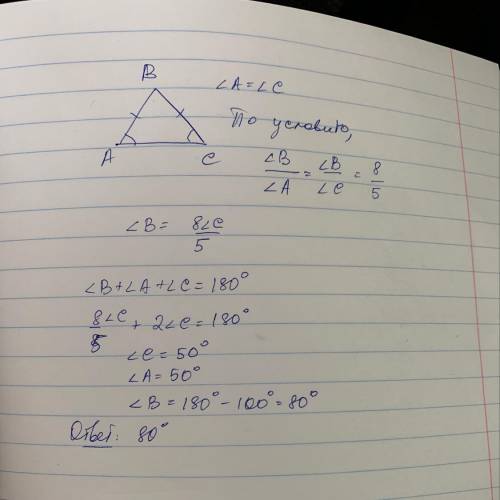 B
∠A = ∠C
A
C
По условию,
∠B/∠A = ∠B/∠C = 8/5
∠B = 8∠C/5
∠B + ∠A + ∠C = 180°
8∠C/5 + 2∠C = 180°
∠C = 50°
∠A = 50°
∠B = 180° - 100° = 80°
Ответ: 80°